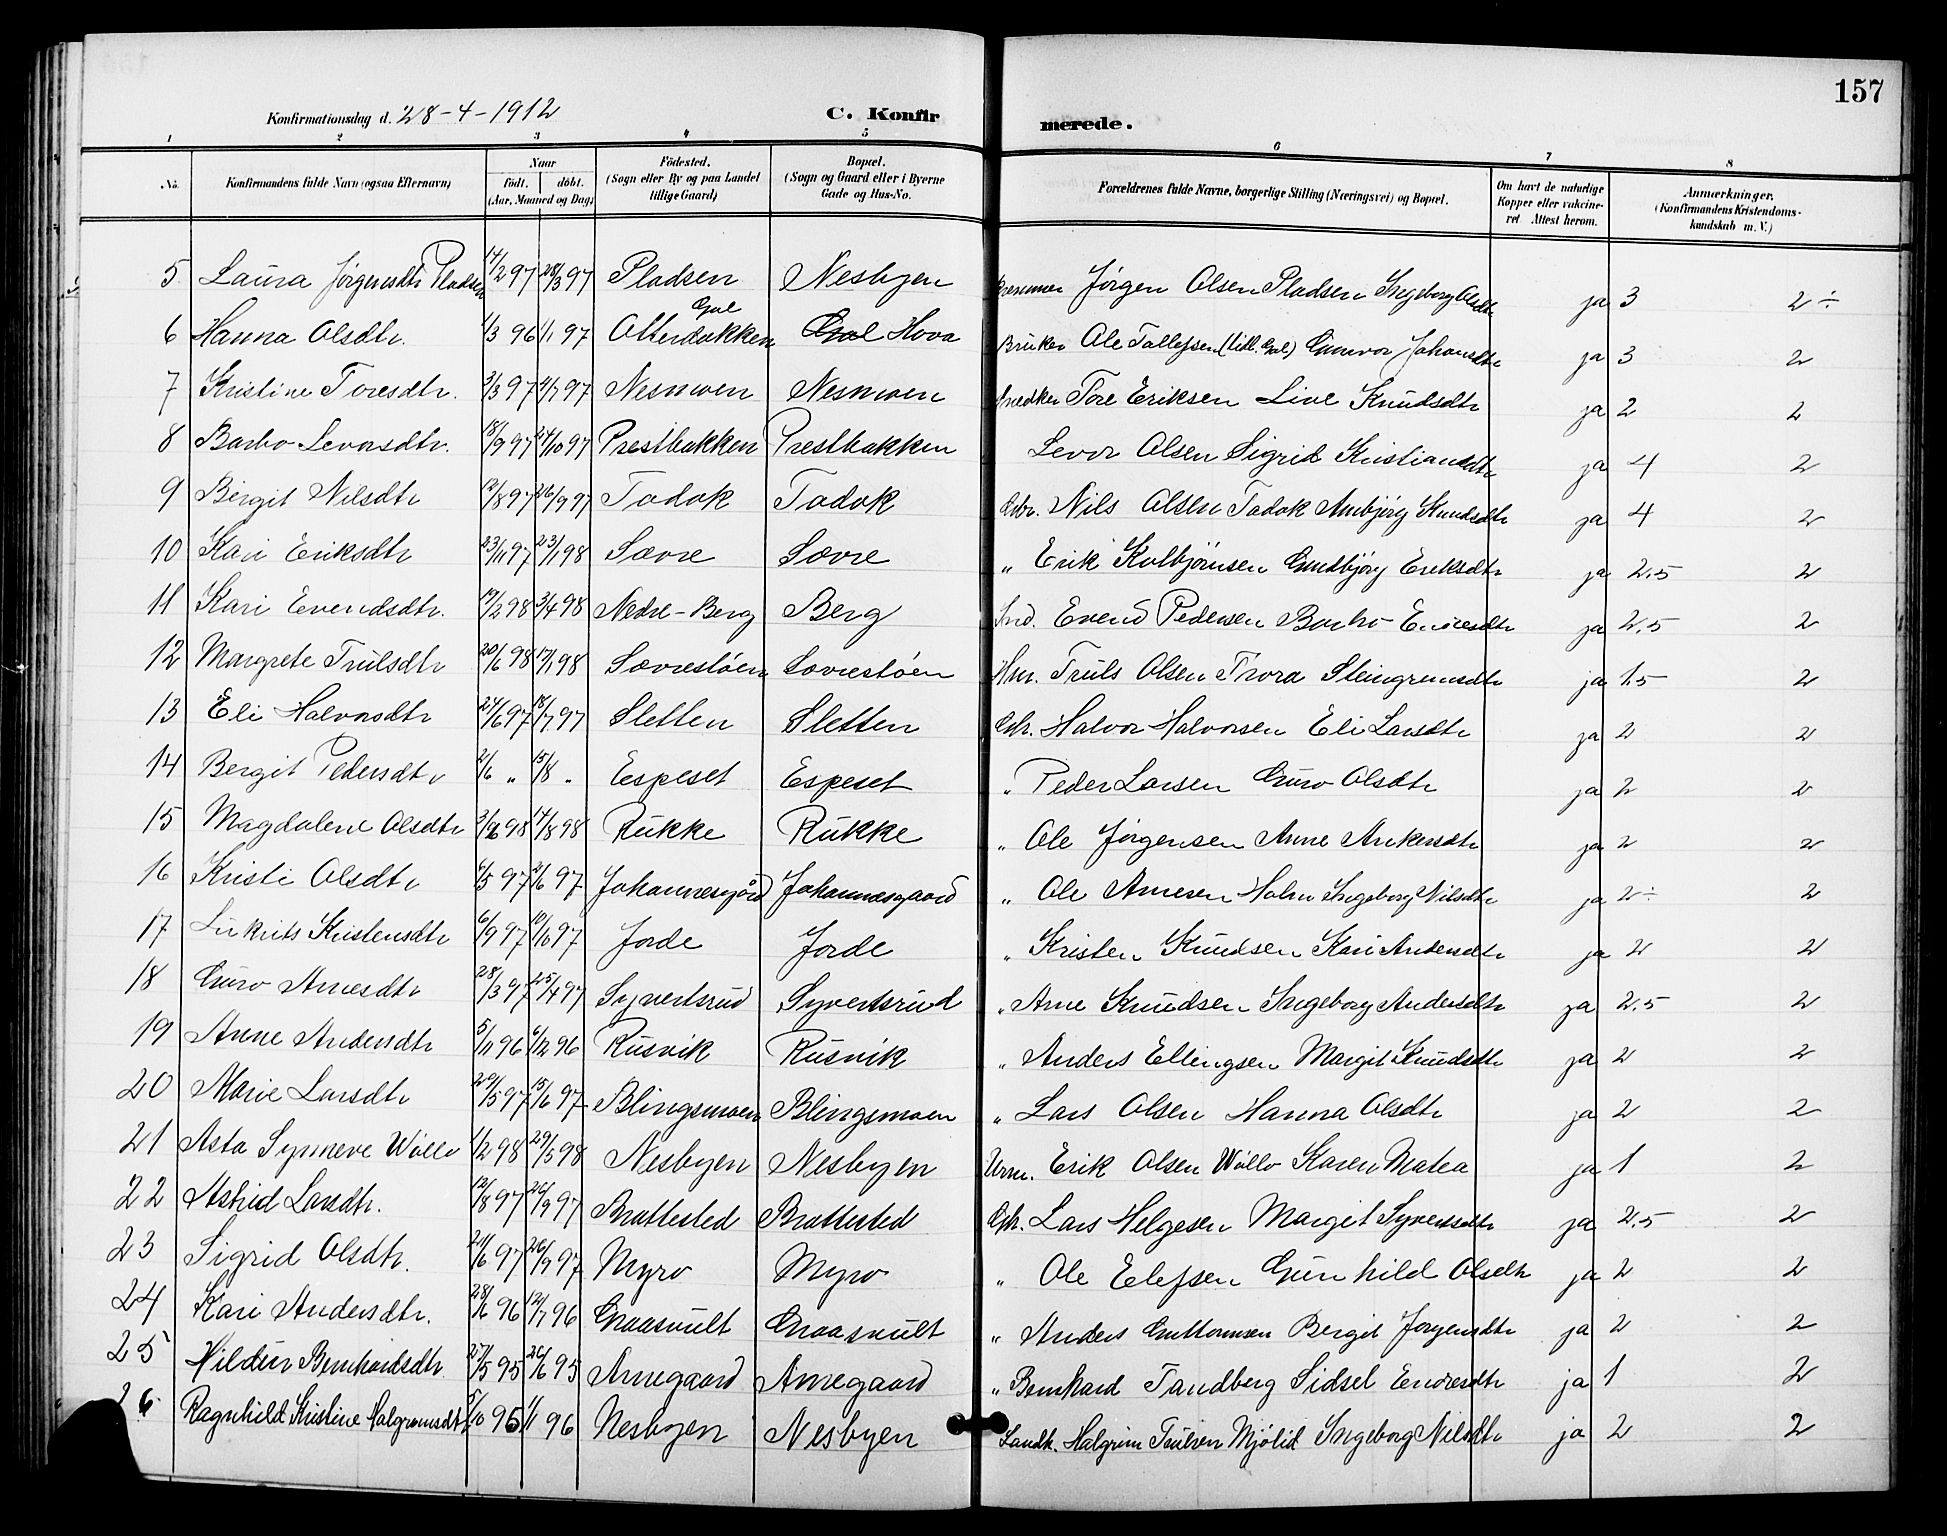 157
Konfirmationsdag d. 28-4-1912 C. Konfirmerede.
1 2 3 4 5 6 7 8
No. Konfirmandens fulde Navn (ogsaa Efternavn) Naar födt. döbt. (Aar, Maaned og Dag) Födested. (Sogn eller By og paa Landet tillige Gaard) Bopæl. (Sogn og Gaard eller i Byerne Gade og Hus-No. Forældrenes fulde Navne, borgerlige Stilling (Næringsvei) og Bopæl. Om havt de naturlige Kopper eller vakcineret Attest herom. Anmærkninger. (Konfirmandens Kristendomskundskab m. V.)
5 Laura Jørgensdtr Pladsen 14/2 97 28/3 97 Pladsen Nesbyen Jørgen Olsen Pladsen Ingeborg Olsdtr ja 3 2÷
6 Hanna Olsdtr. 1/3 96 1/1 97 Gol Hova Bruker Ole Tollefsen (Gol) Gunvor Johansdtr ja 3 2
7 Kristine Toresdtr. 3/3 97 4/7 97 Nesmoen Nesmoen Snedker Tore Eriksen Live Knudsdtr ja 2 2
8 Barbo Levorsdtr. 18/9 97 24/10 97 Prestbakken Prestbakken Levor Olsen Sigrid Kristiansdtr ja 4 2
9 Bergit Nilsdtr 12/8 97 26/9 97 Todok Todok Gbr. Nils Olsen Todok Ambjørg Knudsdtr ja 4 2
10 Kari Eriksdtr 23/11 97 23/1 98 Sævre Sævre " Erik Kolbjørnsen Gundbjørg Eriksdtr ja 2,5 2
11 Kari Evendsdtr. 19/2 98 3/4 98 Nedre-Berg Berg Ind. Evend Pedersen Barbro Endresdtr ja 2,5 2
12 Margrete Trulsdtr 20/6 98 17/1 98 Sævrestøen Sævrestøen Hm. Truls Olsen Thora Steingrimsdtr ja 1.5 2
13 Eli Halvorsdtr 24/6 97 18/7 97 Sletten Sletten Gbr. Halvor Halvorsen Eli Larsdtr ja 2 2
14 Bergit Pedersdtr 2/6 " 15/8 " Espeset Espeset " Peder Larsen Guro Olsdtr ja 2 2
15 Magdalene Olsdtr 98 14/8 98 Rukke Rukke " Ole Jørgensen Anne Ankersdtr ja 2 2
16 Kristi Olsdtr 6/5 97 2/6 97 Johannesgård Johannesgaard " Ole Arnesen Holm Ingeborg Nilsdtr ja 2÷ 2
17 Kristensdtr 6/9 97 10/10 97 Jorde Jorde " Kristen Knudsen Kari Andersdtr ja 2 2
18 Guro Arnesdtr 28/3 97 25/4 97 Syvertsrud Syvertsrud " Arne Knudsen Ingeborg Andersdtr ja 2,5 2
19 Anne Andersdtr 5/11 96 6/12 96 Rusvik Rusvik " Anders Ellingsen Margit Knudsdtr ja 2 2
20 Marie Larsdtr 29/5 97 15/6 97 Blingsmoen Blingsmoen " Lars Olsen Hanna Olsdtr ja 2 2
21 Asta Synneve Wøllo 1/2 98 29/5 98 Nesbyen Nesbyen Urm. Erik Olsen Wøllo Karen Matea ja 1 2
22 Astrid Larsdtr. 12/8 97 26/9 97 Brattested Brattested Gbr. Lars Helgesen Margit Syvertsdtr ja 2,5 2
23 Sigrid Olsdtr. 21/6 97 26/9 97 Myro Myro " Ole Elefsen Gunhild Olsdtr ja 2 2
24 Kari Andersdtr. 28/6 96 12/7 96 Graasvult Graasvult " Anders Guttormsen Bergit Jørgensdtr ja 2 2
25 Hildur Bernhardsdtr 27/5 95 26/6 95 Arnegaard Arnegaard " Bernhard Tandberg Sidsel Endresdtr ja 1 2
26 Ragnhild Kristine Halgrimsdtr 5/10 95 1/1 96 Nesbyen Nesbyen Landh. Halgrim Trulsen Mjølid Ingeborg Nilsdtr ja 2 2